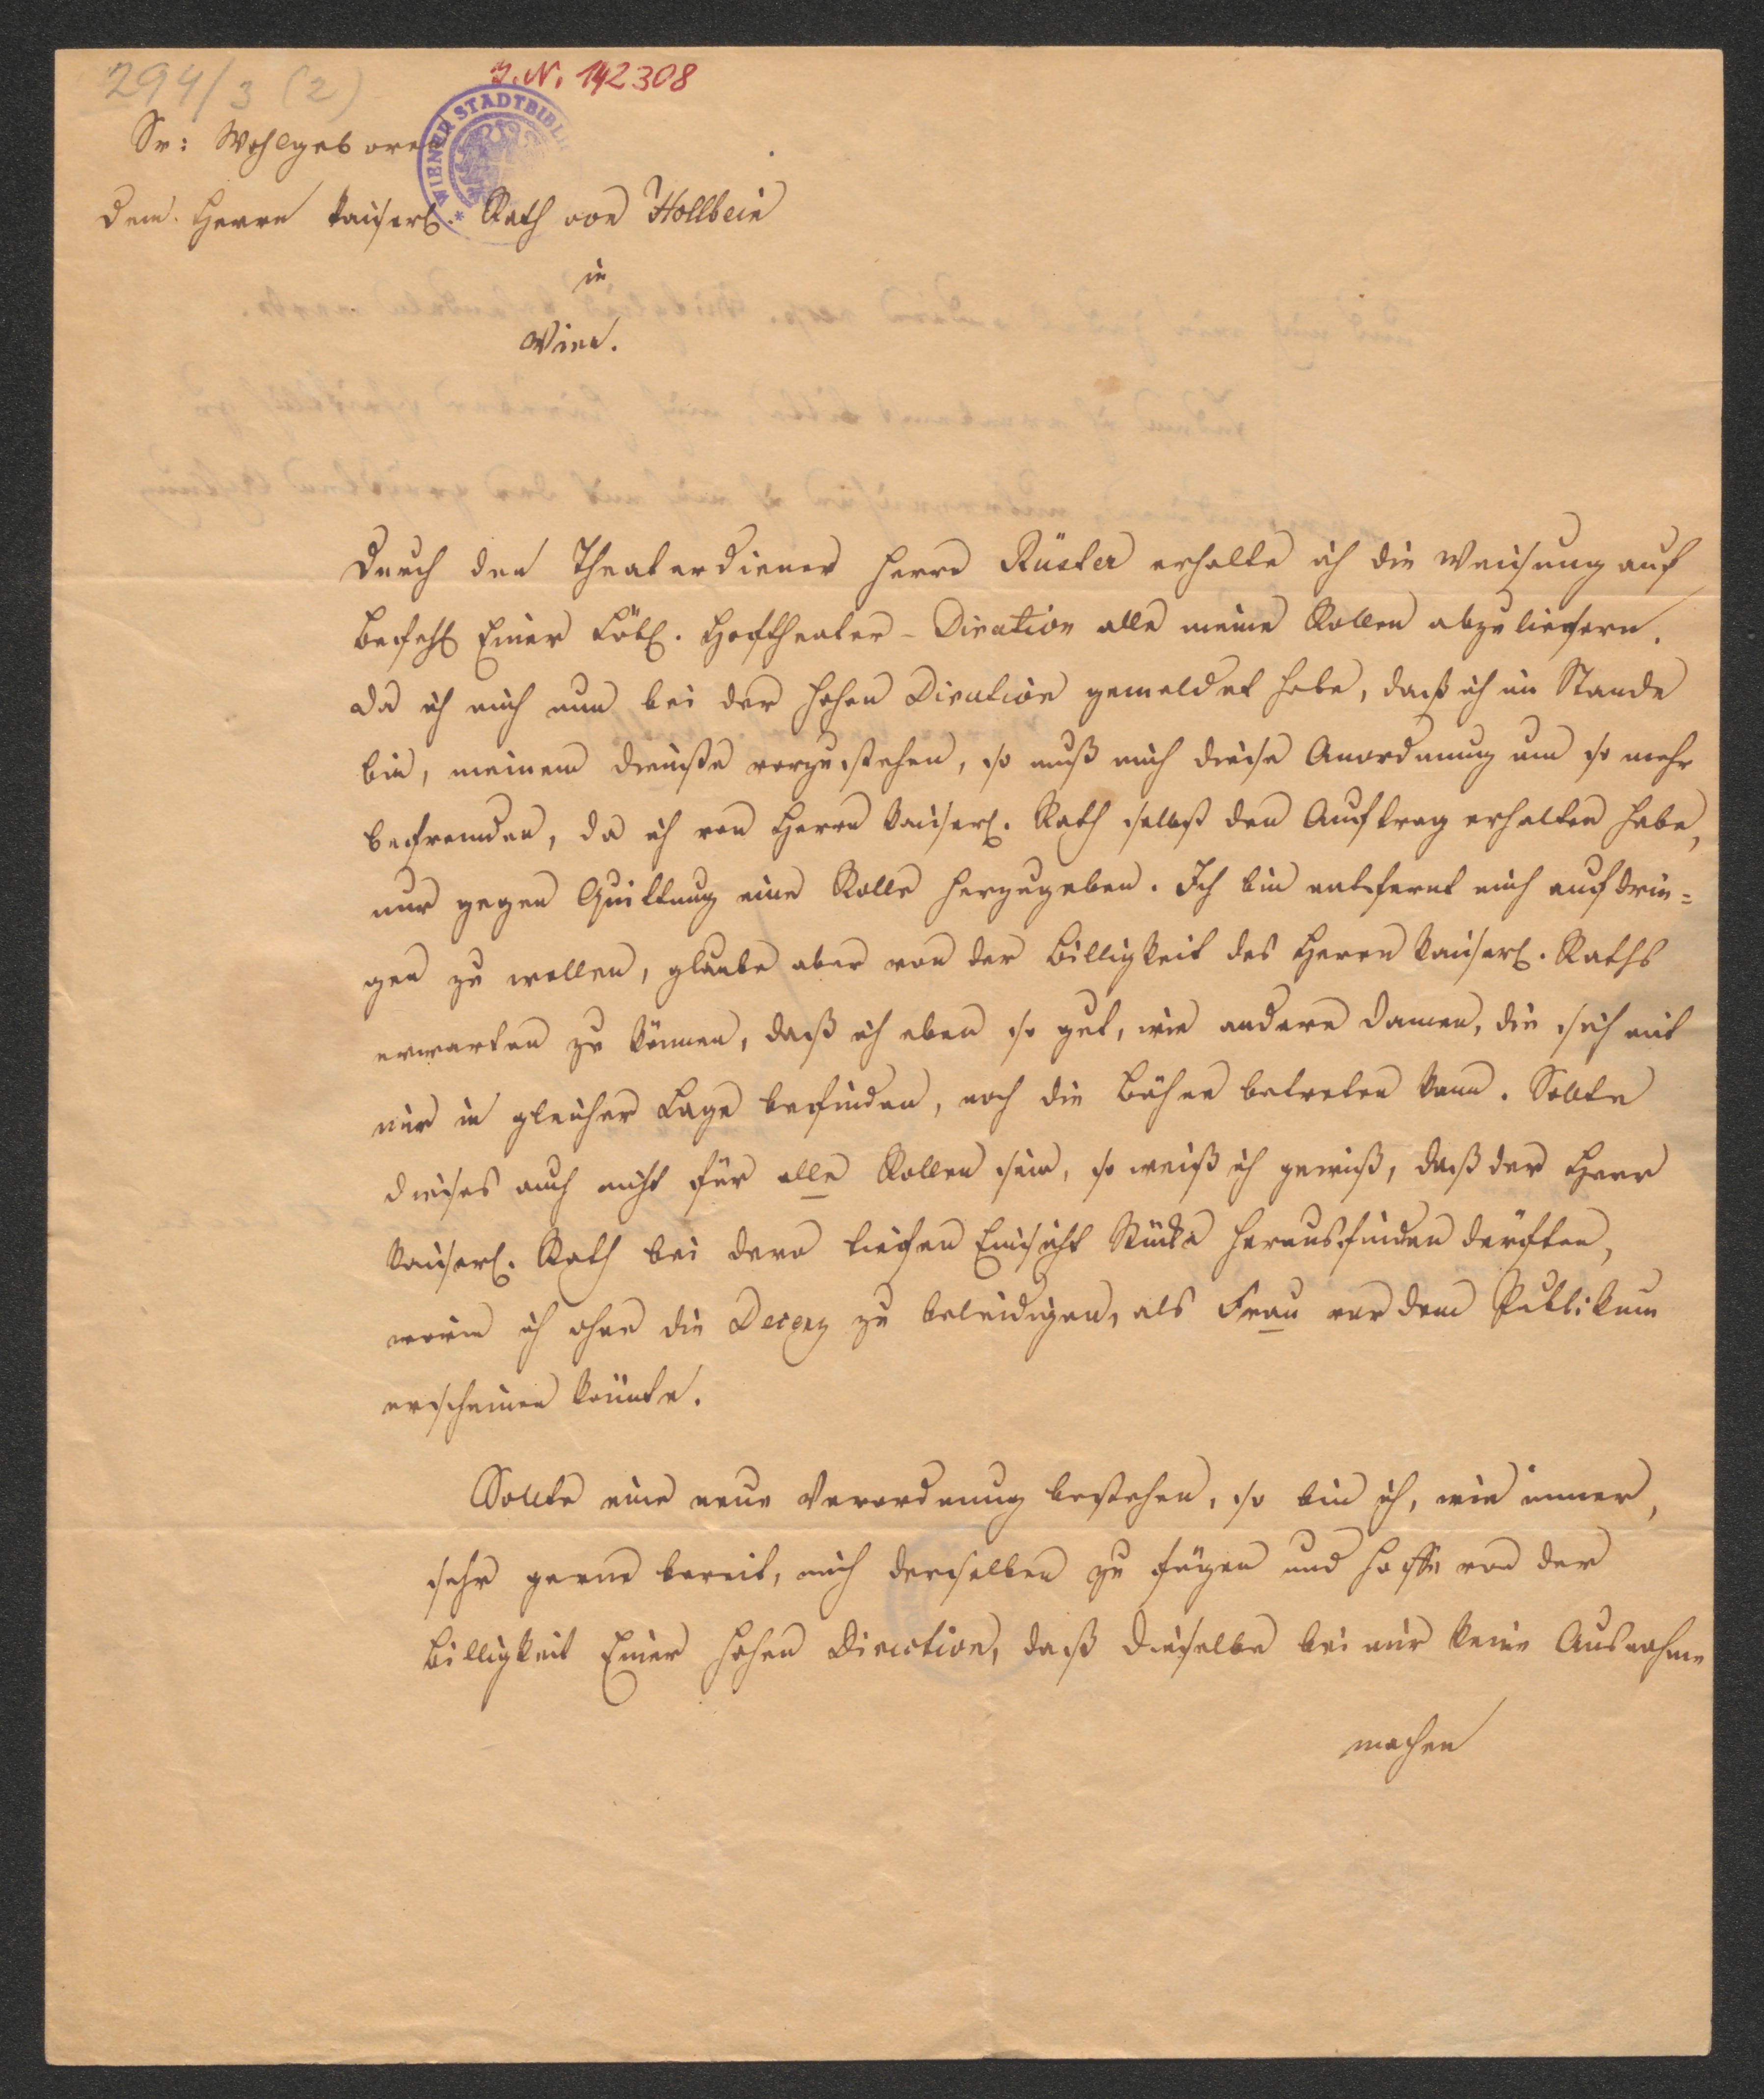 294/3 (2)
J. N. 142308
WIENER STADTBIBL
Sr: Wohlgeboren
dem Herrn kaiserl. Rath von Hollbein
in
Wien.
Durch den Theaterdiener Herrn Rüster erhalte ich die Weisung auf
Befehl Einer Löbl. Hoftheater-Direction alle meine Rollen abzuliefern.
Da ich mich nun bei der hohen Direction gemeldet habe, daß ich im Stande
bin, meinem Dienste vorzustehen, so muß mich diese Anordnung um so mehr
befremden, da ich von Herrn kaiserl. Rath selbst den Auftrag erhalten habe,
nur gegen Quittung eine Rolle herzugeben. Ich bin entfernt mich aufdrin=
gen zu wollen, glaube aber von der Billigkeit des Herrn kaiserl. Raths
erwarten zu können, daß ich eben so gut, wie andere Damen, die sich mit
mir in gleicher Lage befinden, noch die Bühne betreten kann. Sollte
dieses auch nicht für alle Rollen sein, so weiß ich gewiß, daß der Herr
kaiserl. Rath bei dero tiefen Einsicht Stücke herausfinden dürften,
worin ich ohne die Decenz zu beleidigen, als Frau vor dem Publikum
erscheinen könnte.
Sollte eine neue Verordnung bestehen, so bin ich, wie immer,
sehr gerne bereit, mich derselben zu fügen und hoffe von der
Billigkeit Einer hohen Direction, daß dieselbe bei mir keine Ausnahme
machen